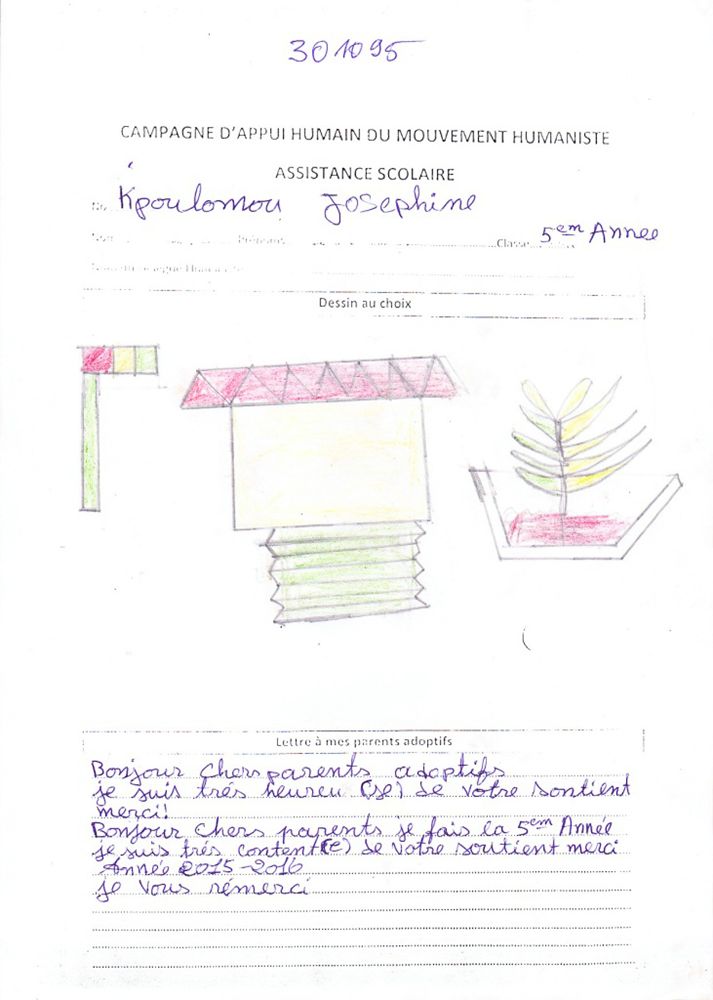 301095
CAMPAGNE D'APPUI HUMAIN DU MOUVEMENT HUMANISTE
ASSISTANCE SCOLAIRE
Kpoulomou Josephine
Classe 5em Annee
Dessin au choix
Lettre à mes parents adoptifs
Bonjour chers parents adoptifs
je suis trés heureu (se) de votre sontient
merci!
Bonjour chers parents je fais la 5em Année
je suis trés content(e) de votre soutient merci
Année 2015-2016
je vous rémerci